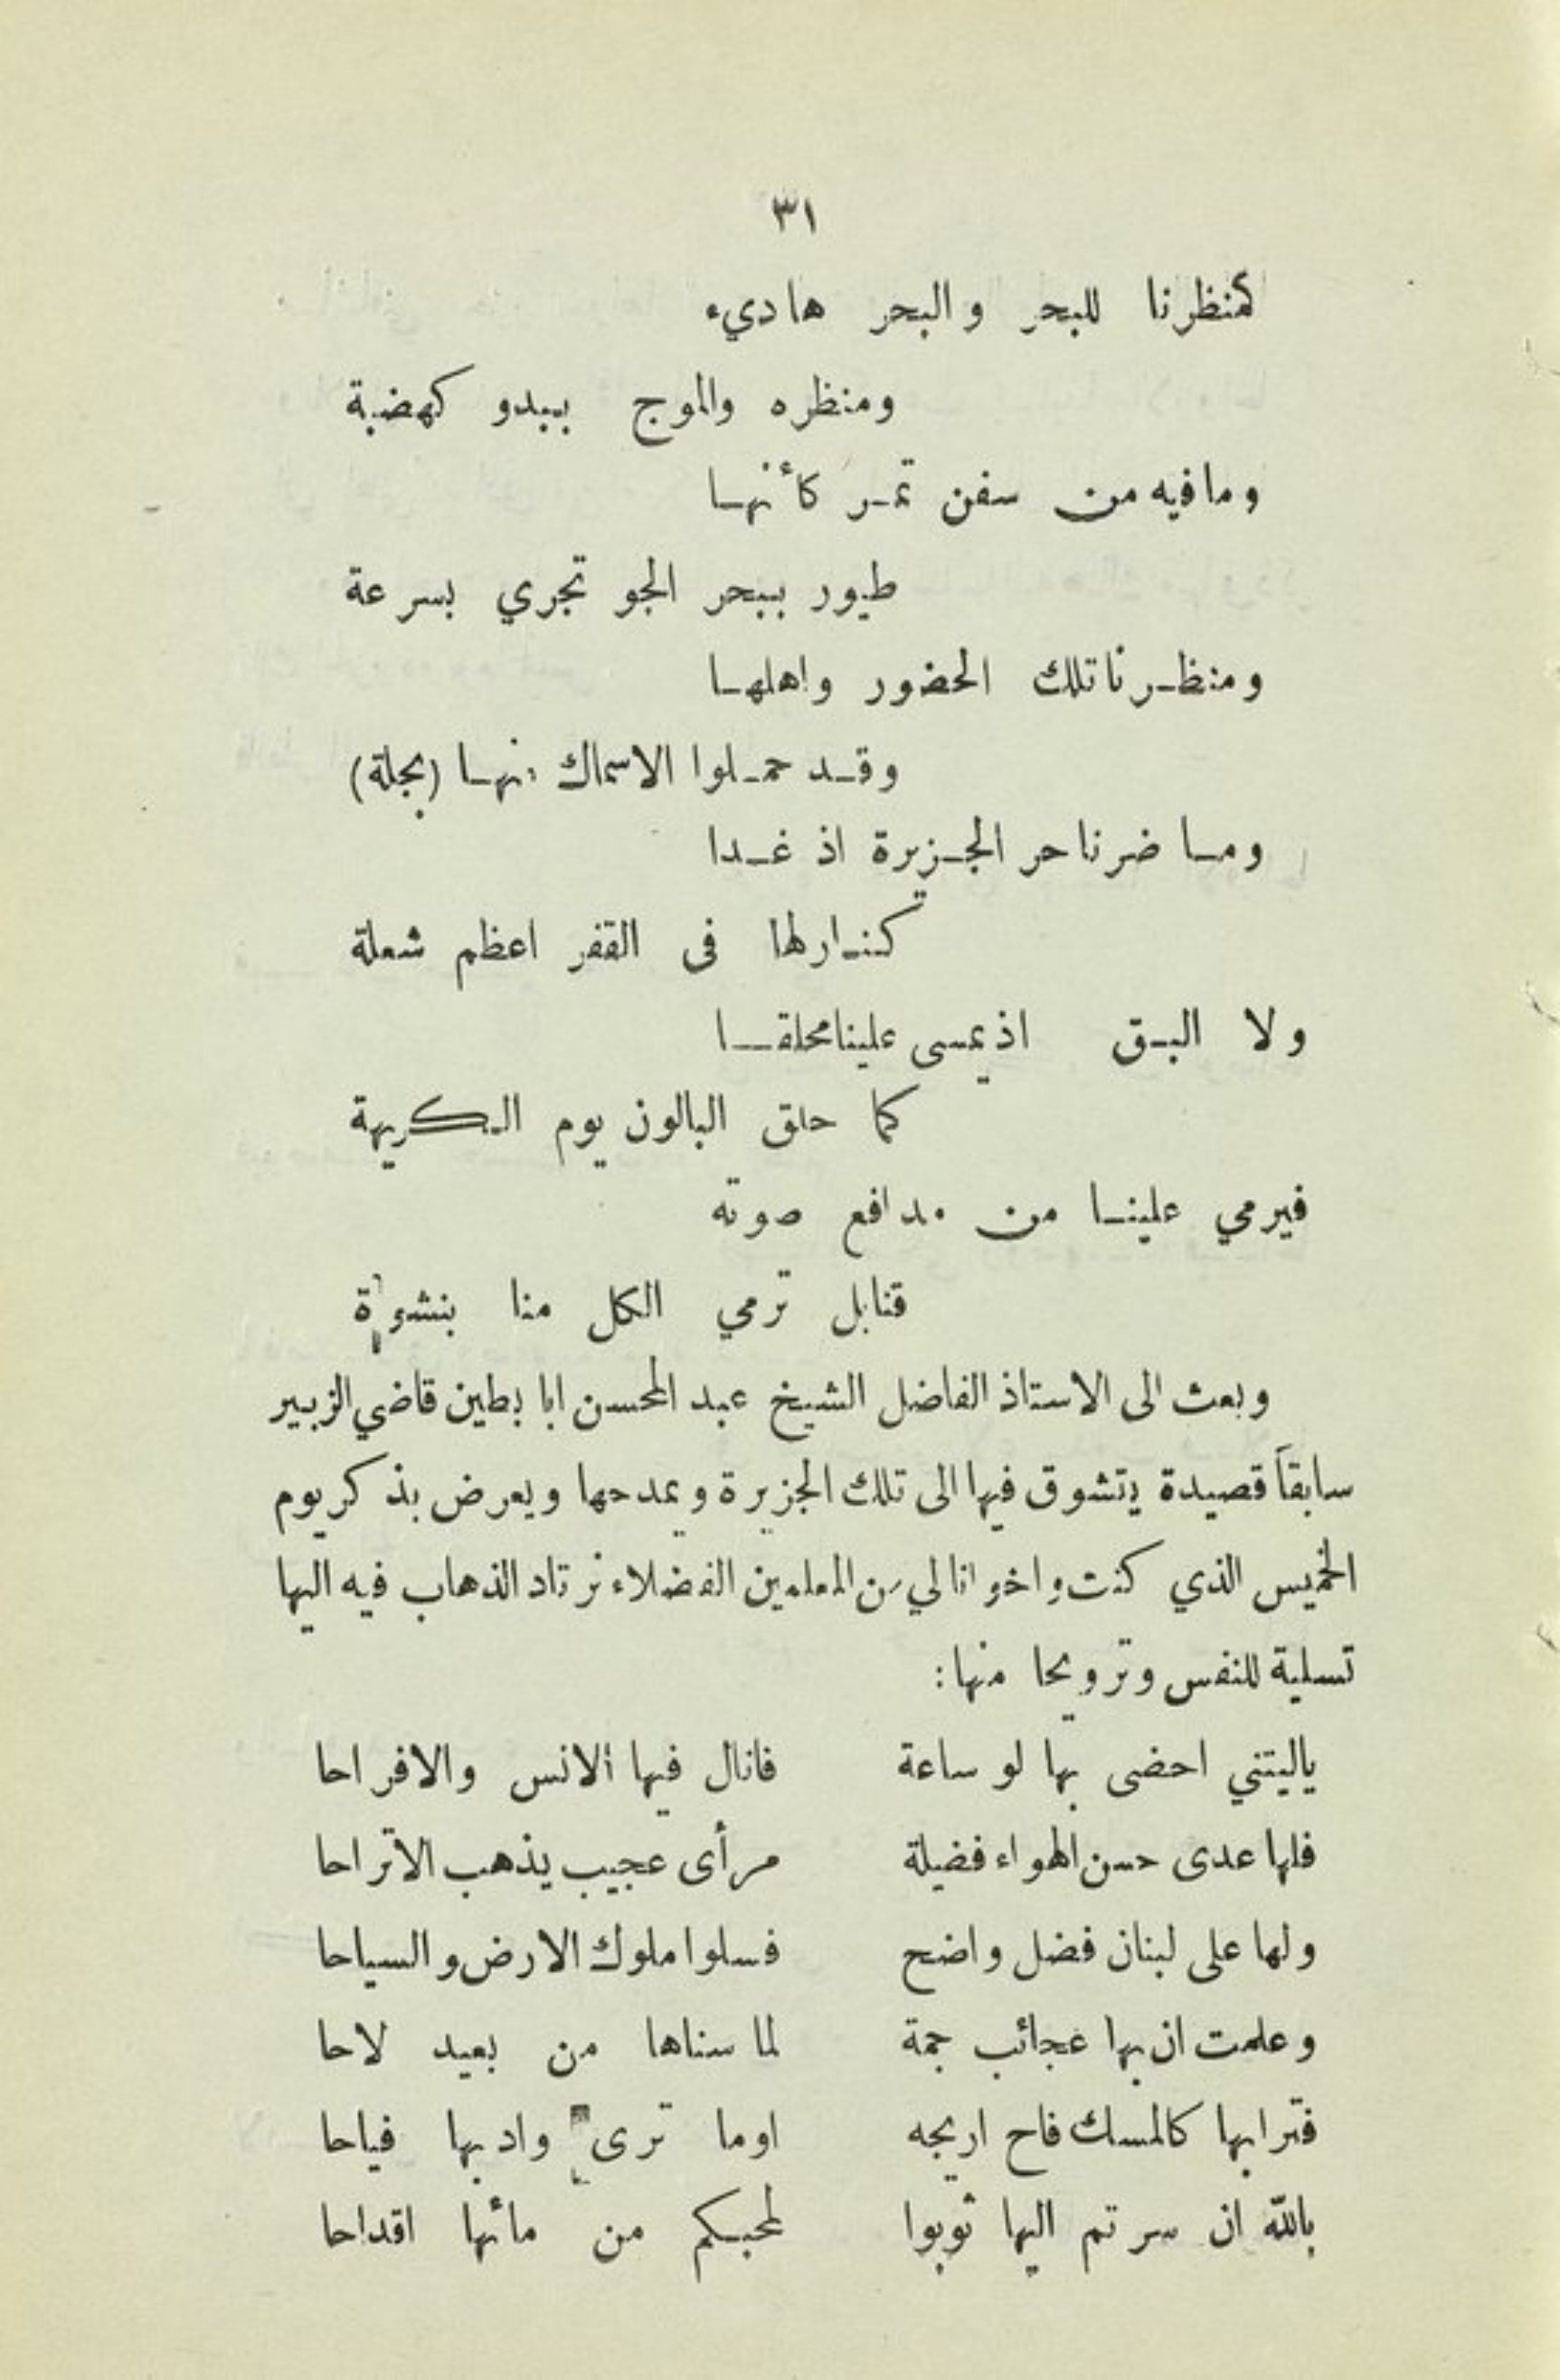 ٣١
كمنظرنا للبحر والبحر هاديء
ومنظره والموج يبدو كهضبة
وما فيه من سفن تمر كأنها
طيور ببحر الجو تجري بسرعة
ومنظرنا تلك الحضور واهلها
وقد حملوا الاسماك منها (بجلة)
وما ضرنا حر الجزيرة اذ غدا
كنار لها فى القفر اعظم شعلة
ولا البق اذ يمسى علينا محلقا
كما حلق البالون يوم الكريهة
فيرمي علينا من مدافع صوته
قنابل ترمي الكل منا بنشوة
وبعث الى الاستاذ الفاضل الشيخ عبد المحسن ابا بطين قاضي الزبير
سابقاً قصيدة يتشوق فيها الى تلك الجزيرة ويمدحها ويعرض بذكر يوم
الخميس الذي كنت واخوانا لي من المعلمين الفضلاء نرتاد الذهاب فيه اليها
تسلية للنفس وترويحا منها:
ياليتني احضى بها لو ساعة فانال فيها الانس والافراحا
فلها عدى حسن الهواء فضيلة مرأى عجيب يذهب الاتراحا
ولها على لبنان فضل واضح فسلوا ملوك الارض والسياحا
وعلمت ان بها عجائب جمة لما سناها من بعيد لاحا
فترابها كالمسك فاح اريجه اوما ترى واديها فياحا
بالله ان سرتم اليها ثوبوا لمحبكم من مائها اقداحا